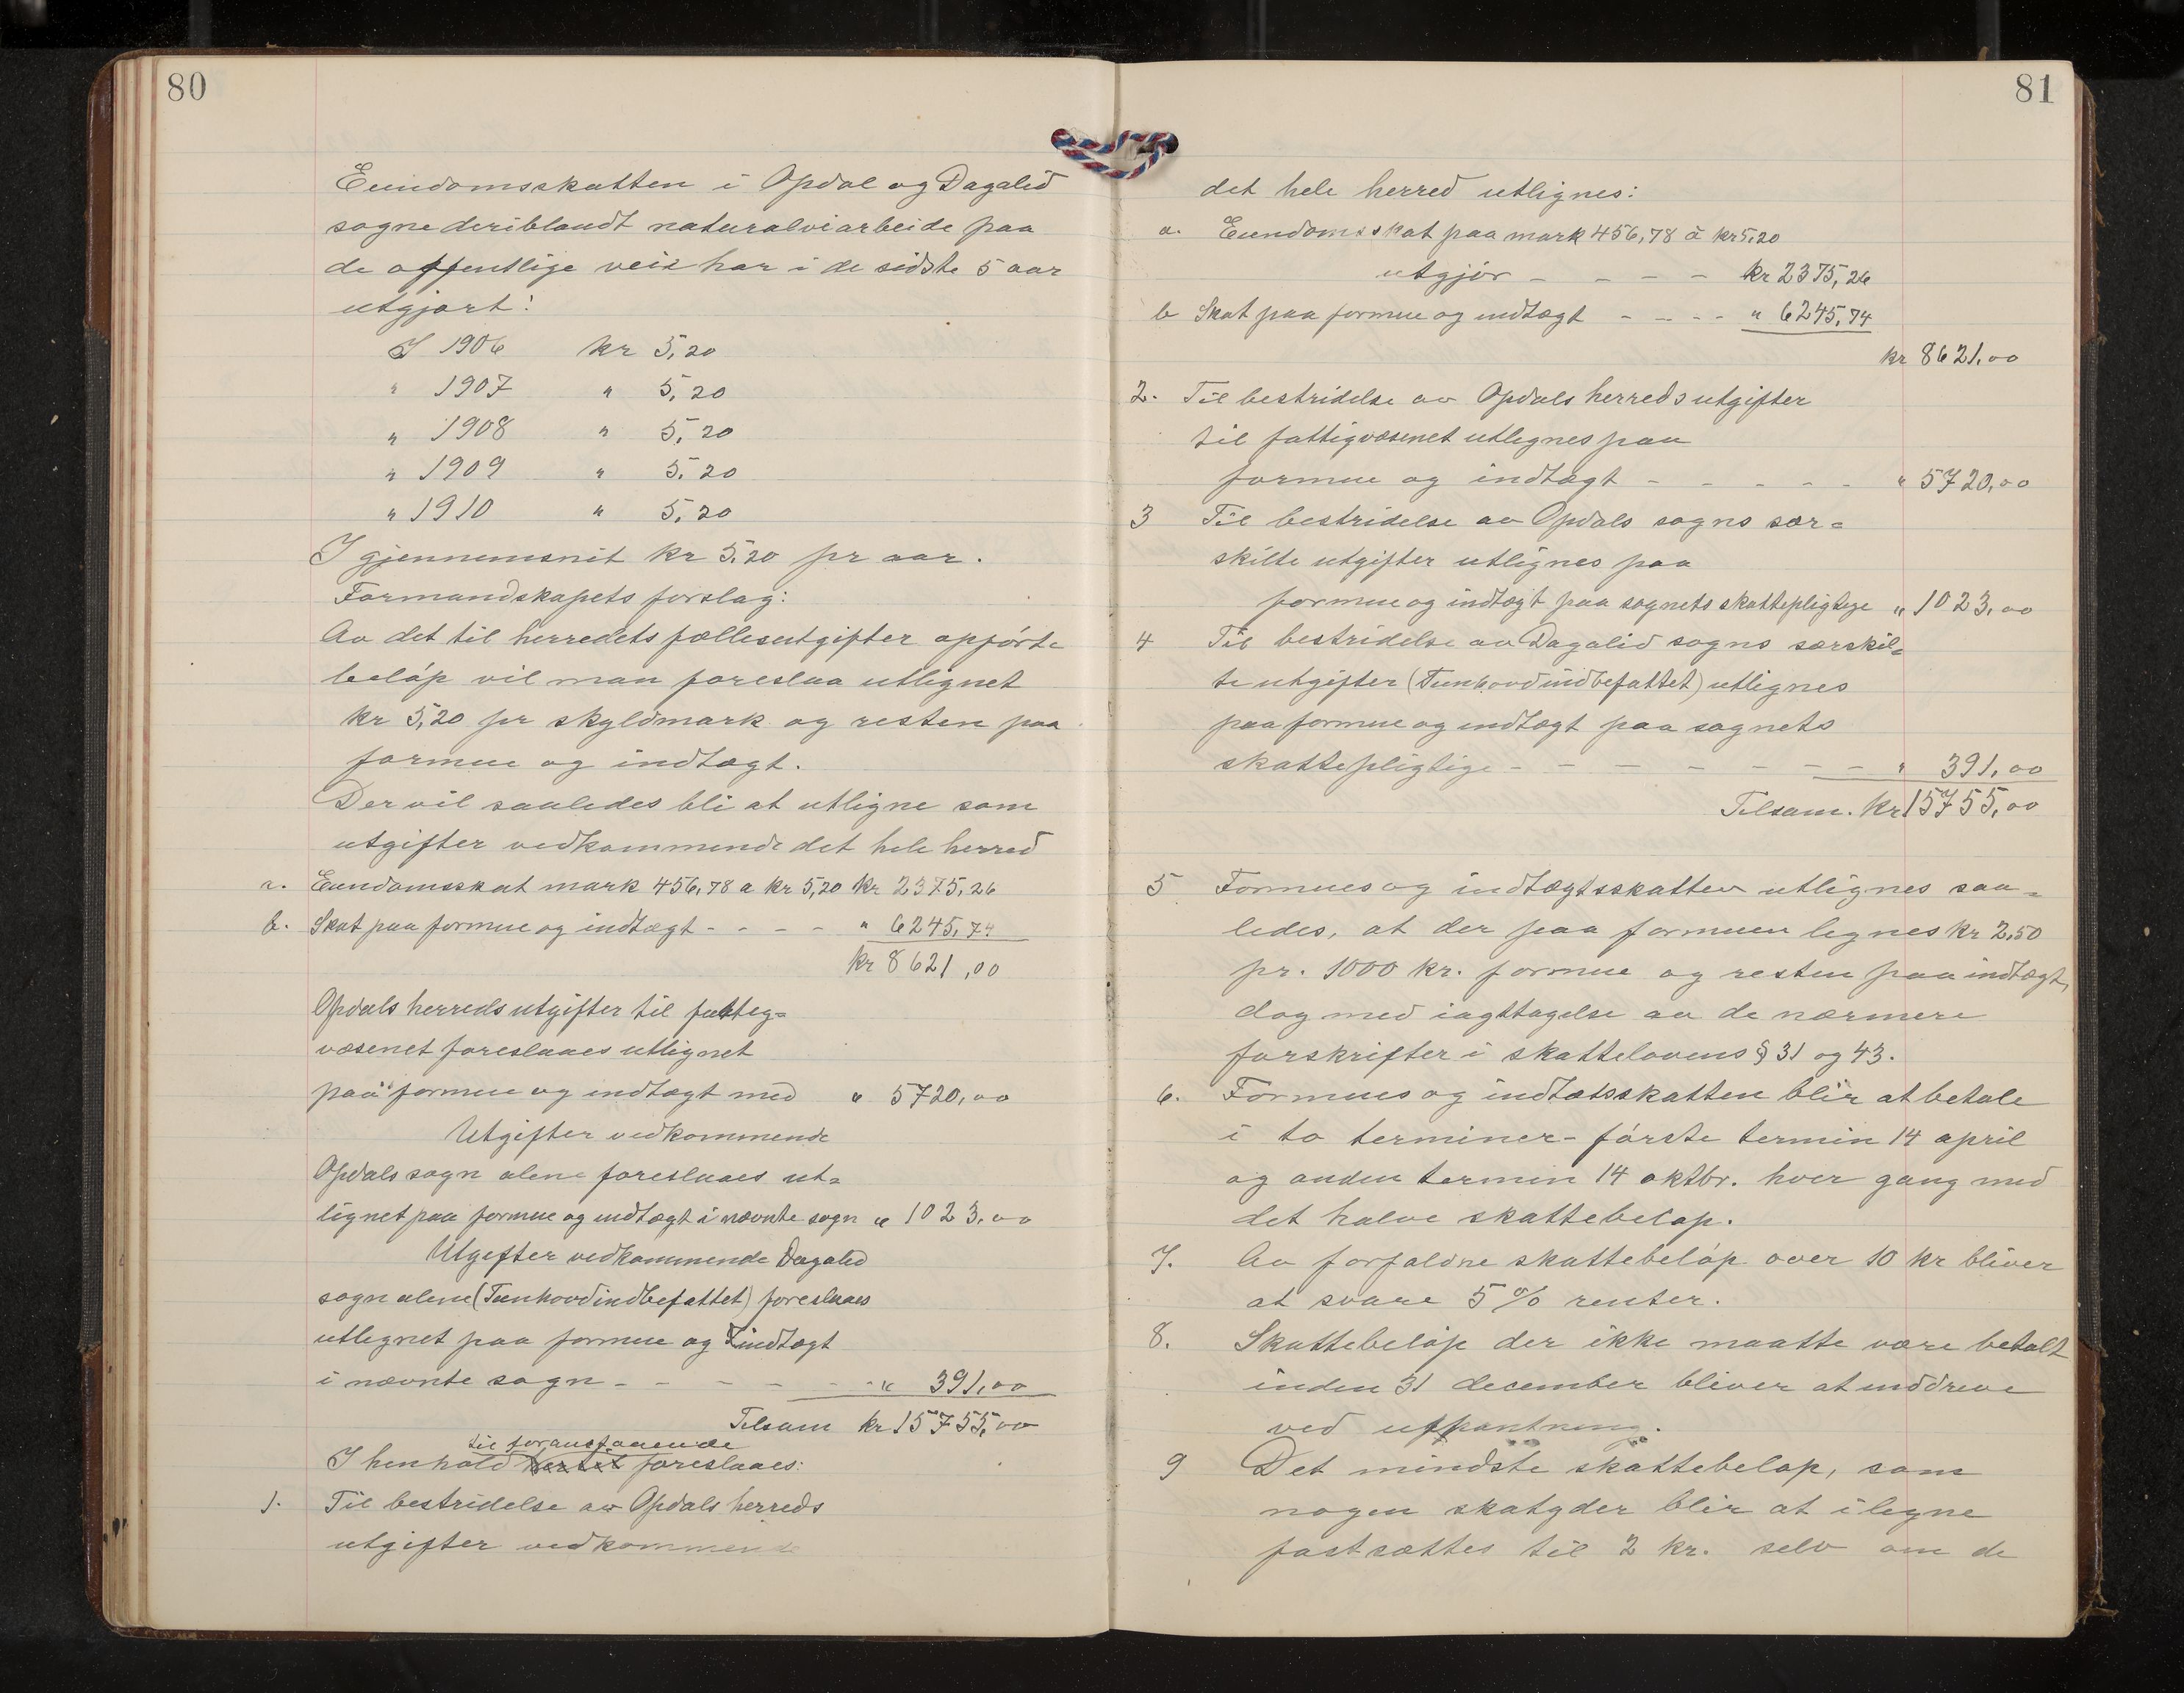 80
Eiendomsskatten i Opdal og Dagalid
sogne deriblandt naturalveiarbeide paa
de offentlige veie har i de sidste 5 aar
utgjort:
I 1906 kr 5,20
" 1907 " 5,20
" 1908 " 5,20
" 1909 " 5,20
" 1910 " 5,20
I gjennemsnit kr 5,20 pr aar.
Formandskapets forslag:
Av det til herredets fællesutgifter opførte
beløp vil man foreslaa utlignet
kr 5,20 pr skyldmark og resten paa
formue og indtægt.
Der vil saaledes bli at utligne som
utgifter vedkommende det hele herred
a. Eiendomsskat mark 456,78 a kr 5,20 kr 2375,26
b. Skat paa formue og indtægt - - - - " 6245,74
kr 8621,00
Opdals herreds utgifter til fatteg=
væsenet foreslaaes utlignet
paa formue og indtægt med " 5720,00
Utgifter vedkommende
Opdals sogn alene foreslaaes ut=
lignet paa formue og indtægt i nævnte sogn " 1023,00
Utgifter vedkommende Dagalid
sogn alene (Tunhovd indbefattet) foreslaaes
utlignet paa formue og indtægt
i nævnte sogn - - - - - - " 391,00
Tilsam kr 15755,00
til foranstaaende
I henhold hertil foreslaaes:
1. Til bestridelse av Opdals herreds
utgifter vedkommende
81
det hele herred utlignes:
a. Eiendomsskat paa mark 456,78 à kr 5,20
utgjør - - - - kr 2375,26
b Skat paa formue og indtægt - - - - " 6245,74
kr 8621,00
2. Til bestridelse av Opdals herreds utgifter
til fattigvæsenet utlignes paa
formue og indtægt - - - - - " 5720,00
3 Til bestridelse av Opdals sogns sær=
skilte utgifter utlignes paa
formue og indtægt paa sognets skattepligtige " 1023,00
4 Til bestridelse av Dagalid sogns særskil=
te utgifter (Tunhovd indbefattet) utlignes
paa formue og indtægt paa sognets
skattepligtige - - - - - - - - " 391,00
Tilsam. kr 15755,00
5 Formues og indtægtsskatten utlignes saa=
ledes, at der paa formuen lignes kr 2,50
pr. 1000 kr. formue og resten paa indtægt,
dog med iagttagelse av de nærmere
forskrifter i skattelovens § 31 og 43.
6. Formues og indtætsskatten blir at betale
i to terminer - første termin 14 april
og anden termin 14 oktbr. hver gang med
det halve skattebeløp.
7. Av forfaldne skattebeløp over 10 kr bliver
at svare 5 % renter.
8. Skattebeløp der ikke maatte være betalt
inden 31 december bliver at inddrive
ved utpantning.
9 Det mindste skattebeløp, som
nogen skatyder blir at ilegne
fastsættes til 2 kr. selv om de